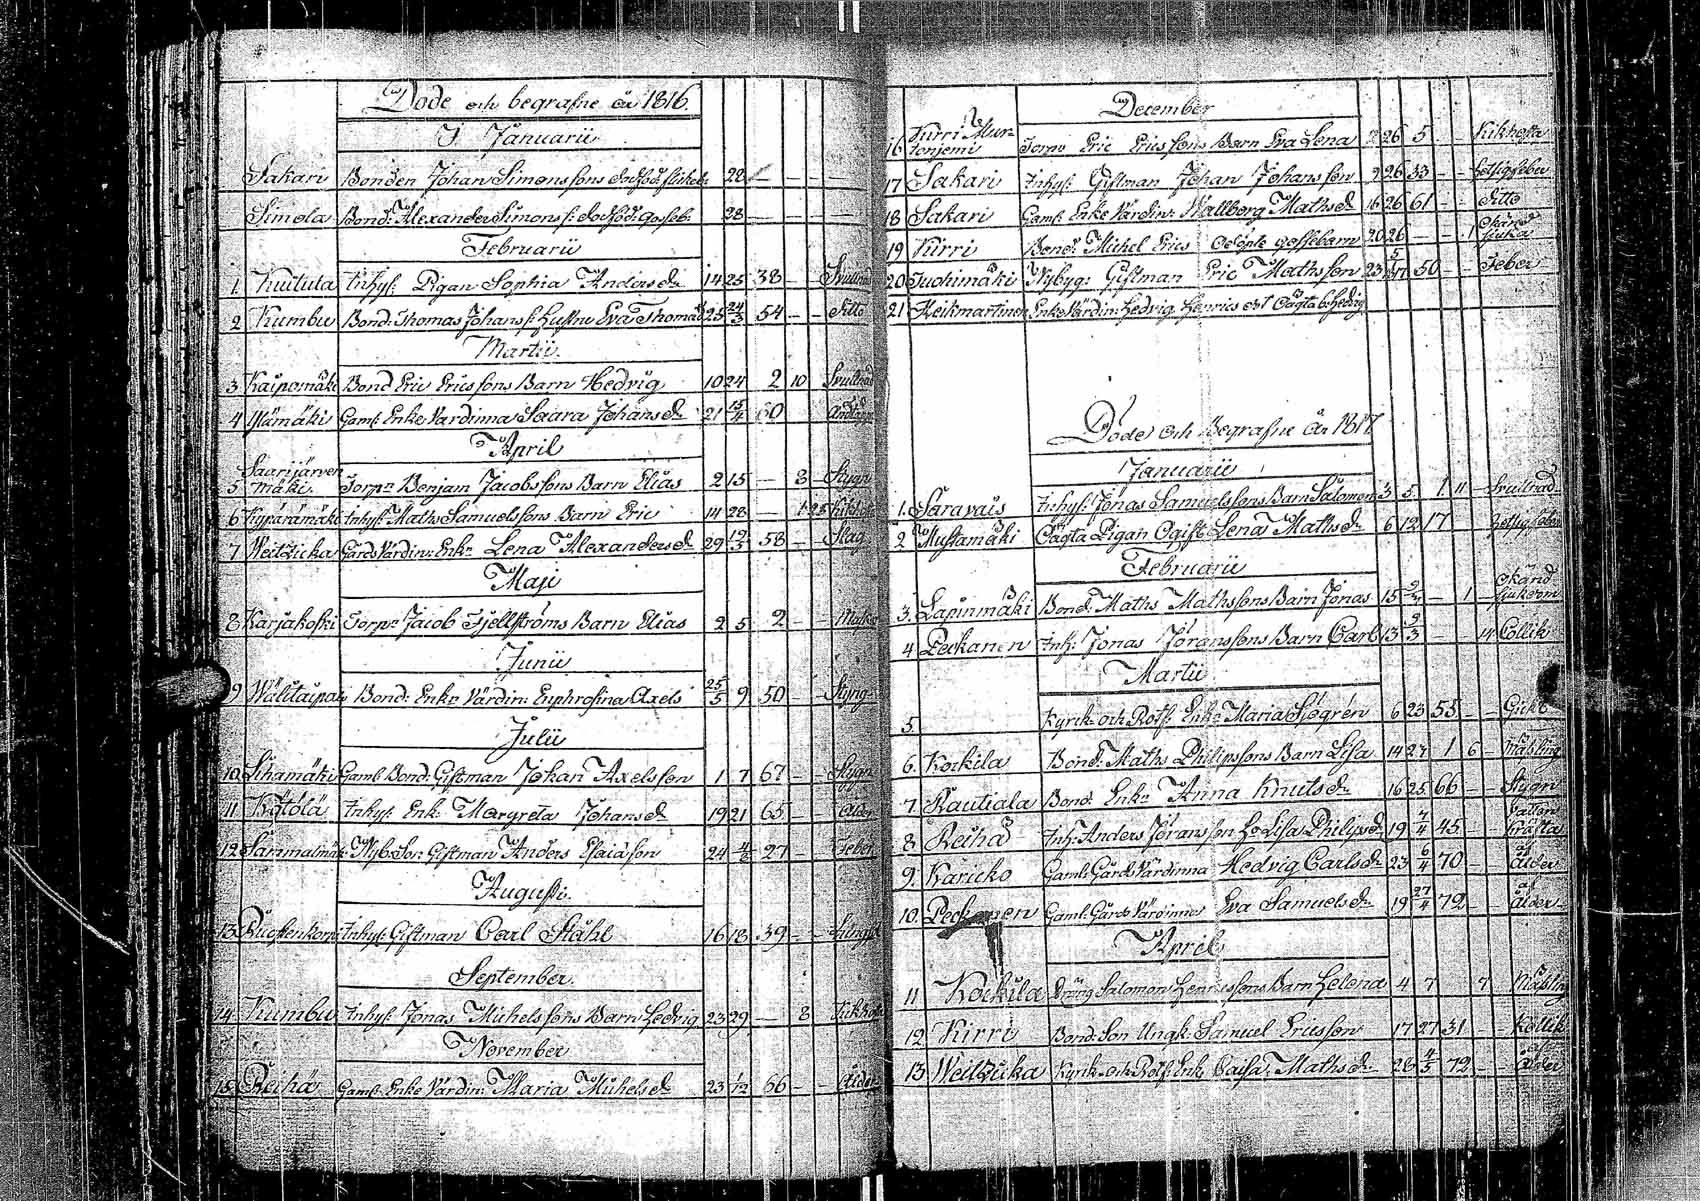 Döde och begrafne år 1816
I Januarii
Sakari Bonden Johan Simonssons dödföd flickeb: 28 — — —
Simola Bond: Alexander Simons s: dödföd: Gosseb: 28 — — —
Februarii
1 Kuituta Inhys: Pigan Sophia Andersdr 14 25 38 — Svullnad
2 Kumbu Bond: Thomas Johans s: hustru Eva Thomasd 25 24/3 54 — — ditto
Martii.
3 Kaipomäki Bond Eric Ericssons Barn Hedvig 10 24 2 10 Svullnad
4 Ylämäki Gaml: Enke Värdinna Saara Johansdr 21 15/4 60
April
5 Saarijärven
mäki Torpr Benjam Jacobssons Barn Elias 2 15 — 3 Stygn
6 Kypärämäki Inhys: Maths Samuelssons Barn Eric 14 28 — 1 25 Kikhosta
7 Weitzicka Gårds Värdin: Enkn Lena Alexandersdr 29 12/5 58 — Slag
Maji
8 Karjakoski Torpr Jacob Fjellströms Barn Elias 2 5 2 — —
Junii
9 Bond: Enkn Värdin: Euphrosina Axels 25/5 9 50 — Styng
Julii
10 Sihamäki Gaml Bond: Giftman Johan Axelsson 1 7 67 — — Stygn
11 Kötölä Inhys: Enk: Margreta Johansd 19 21 65 — ålder
12 Sammalmäki Nyb: Son: Giftman Anders Esaiason 24 4/8 27 — feber
Augusti.
13 Inhys: Giftman Carl Ståhl 16 18 39 — —
September.
14 Kumbu Inhys: Jonas Michelssons Barn Hedvig 23 29 — 8 Kikhosta
November
15 Reihä Gaml: Enke Värdin: Maria Michelsdr 23 1/12 66 — ålder
December
16 Kirri Mur-
tonjemi Torpr Eric Ericssons Barn Eva Lena 2 26 5 — — Kikhosta
17 Sakari Inhys: Giftman Johan Johansson 9 26 33 — — hetsigfeber
18 Sakari Gaml: Enke Värdin: Wallborg Mathsdr 16 26 61 — — ditto
19 Kirri Bond: Michel Erics Odöpte gossebarn 20 26 — — 1 Okänd
sjuka
20 Juohimäki Nybyg: Giftman Eric Mathsson 23 5/17 50 — — Feber
21 Heikmartinen Enke Värdin: Hedvig Henrics
Döde och Begrafne år 1817
Januarii
1. Saravais Inhys: Jonas Samuelssons Barn Salomon 3 5 1 11 — Svullnad
2 Mustamäki Pigan Ogift Lena Mathsdr 6 12 17 hetsig feber
Februarii
3. Lapinmäki Bond: Maths Mathssons Barn Jonas 15 9/3 — 1 okänd
sjukdom
4 Peckanen Inh: Jonas Jöranssons Barn Carl 13 9/3 — 14 Collik
Martii
5. Kyrck- och Rotf: Enkn Maria Sjögrén 6 23 55 — — Gickt
6. Kockila Bond: Maths Philipssons Barn Lisa 14 27 1 6 — Mäßling
7. Rautiala Bond: Enkn Anna Knutsdr 16 25 66 — — Stygn
8 Reihä Inh: Anders Jöransson H: Lisa Philipsd 19 7/4 45 — — vatten
kräfta
9. Karicko Gaml: Gårds Värdinna Hedvig Carlsdr 23 6/4 70 — — af
ålder
10. Peckanen Gaml: Gårds Värdinna Eva Samuelsdr 19 27/4 72 — — af
ålder
April
11 Kockila Dräng Salomon Henricssons Barn Helena 4 7 7 Mäßling
12 Kirri Bond: Son Ungk: Samuel Ericsson 17 27 31 — — Kollik
13 Weitzicka Kyrk- och Rotf: Enk: Caisa Mathsdr 28 4/5 72 — — af
ålder